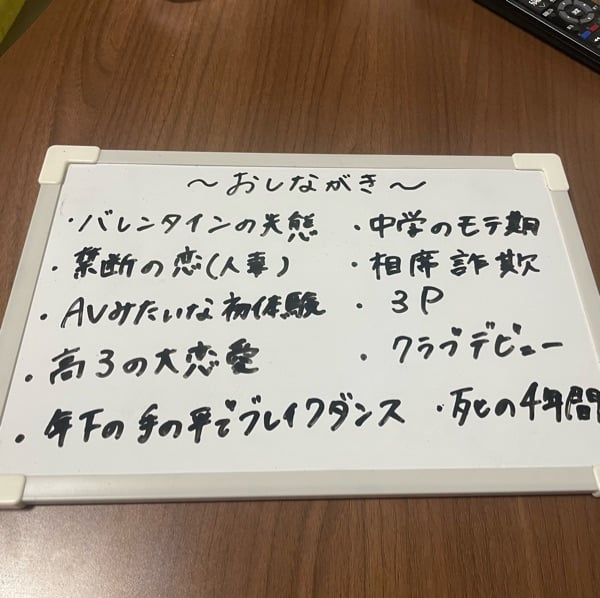 ～おしながき～
・バレンタインの失態
・禁断の恋(人妻)
・AVみたいな初体験
・高3の大恋愛
・年下の手の平でブレイクダンス
・中学のモテ期
・相席詐欺
・3P
・クラブデビュー
・の4年間